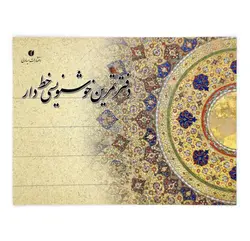 دفتر تمرین خوشنویسی خط دار